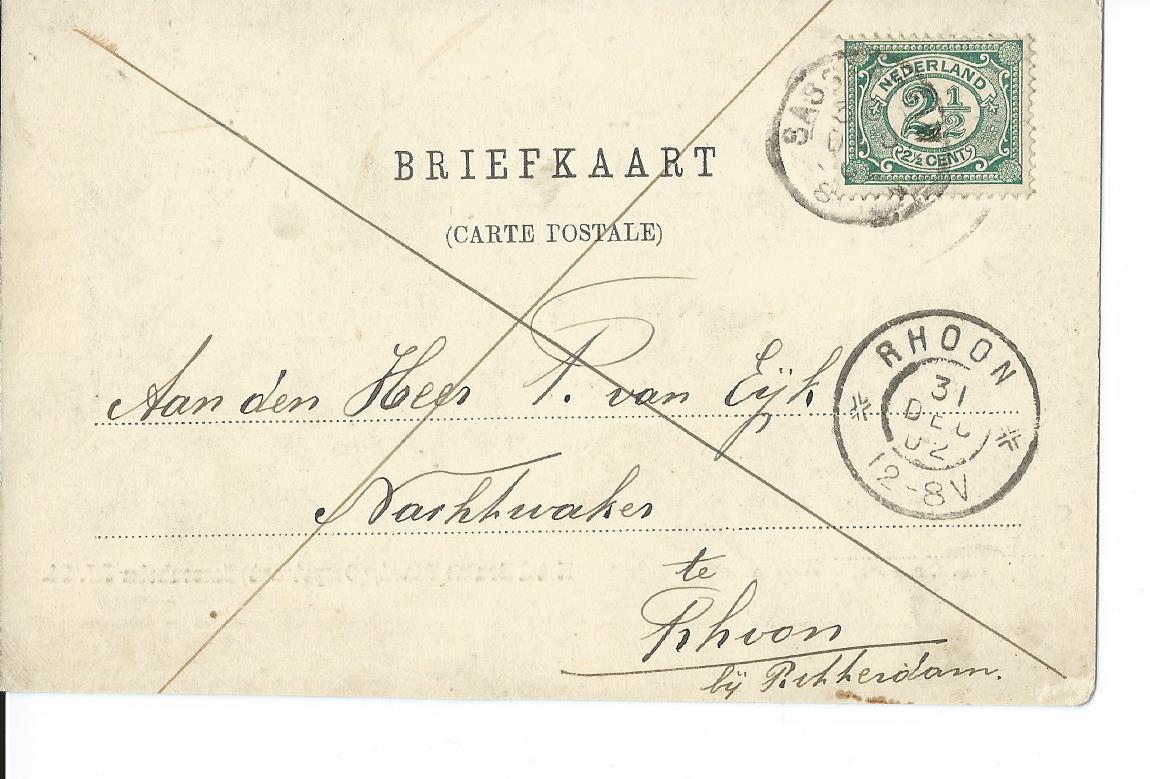 NEDERLAND
2 1/2
2½ CENT
SASS
BRIEFKAART
(CARTE POSTALE)
RHOON
31
DEC
02
12-8V
Aan den Heer P. van Eijk
Nachtwaker
te
Rhoon
bij Rotterdam.